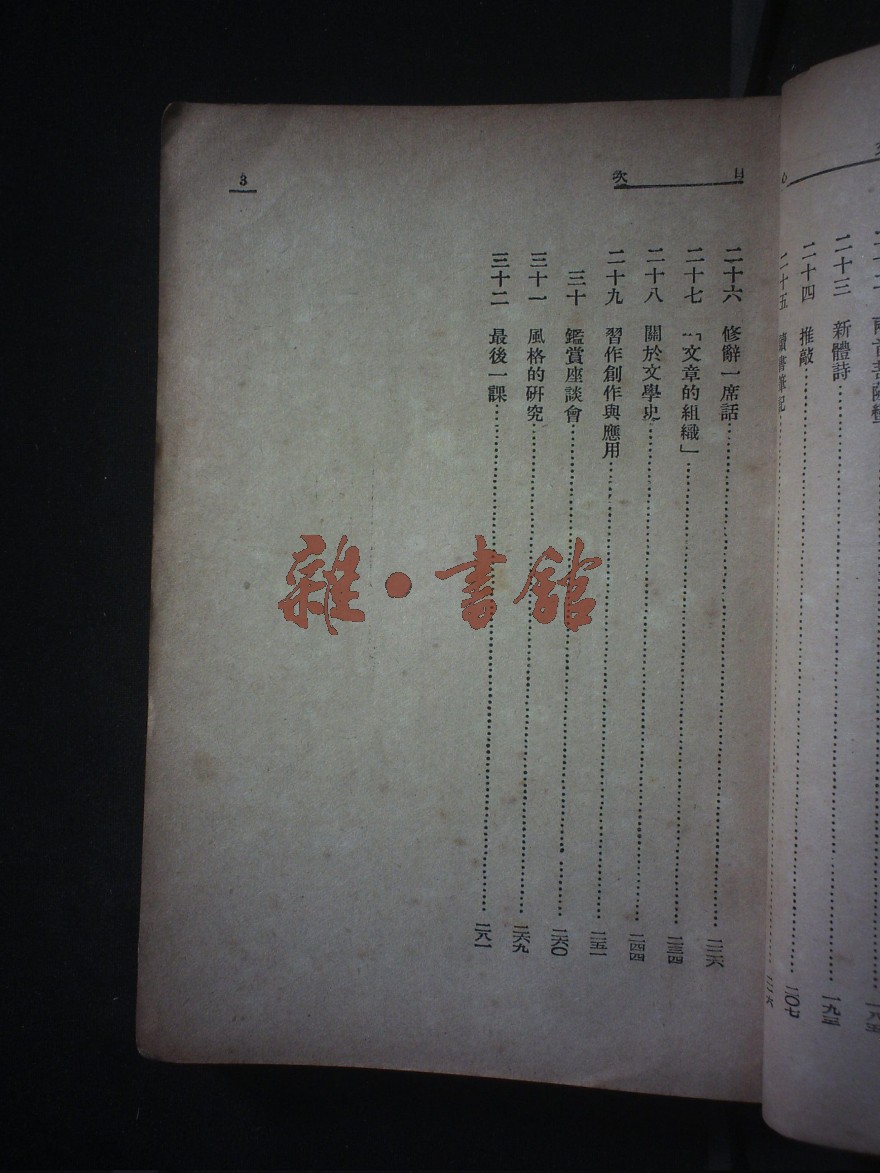 文心
二十三 新體詩 一九三
二十四 推敲 二〇七
二十五 讀書筆記 二一六
目次
3
二十六 修辭一席話 二二六
二十七 「文章的組織」 二三四
二十八 關於文學史 二四四
二十九 習作創作與應用 二五一
三十 鑑賞座談會 二六〇
三十一 風格的研究 二六九
三十二 最後一課 二八一
雜·書館